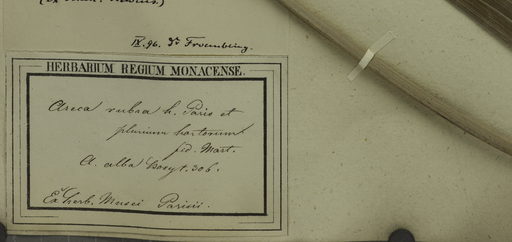 IX. 96. Dr Froembling.
HERBARIUM REGIUM MONACENSE.
Areca rubra h. Paris et
plurium hortorum
fid. Mart.
A. alba Bory t. 306.
Ex herb. Musei Parisii.